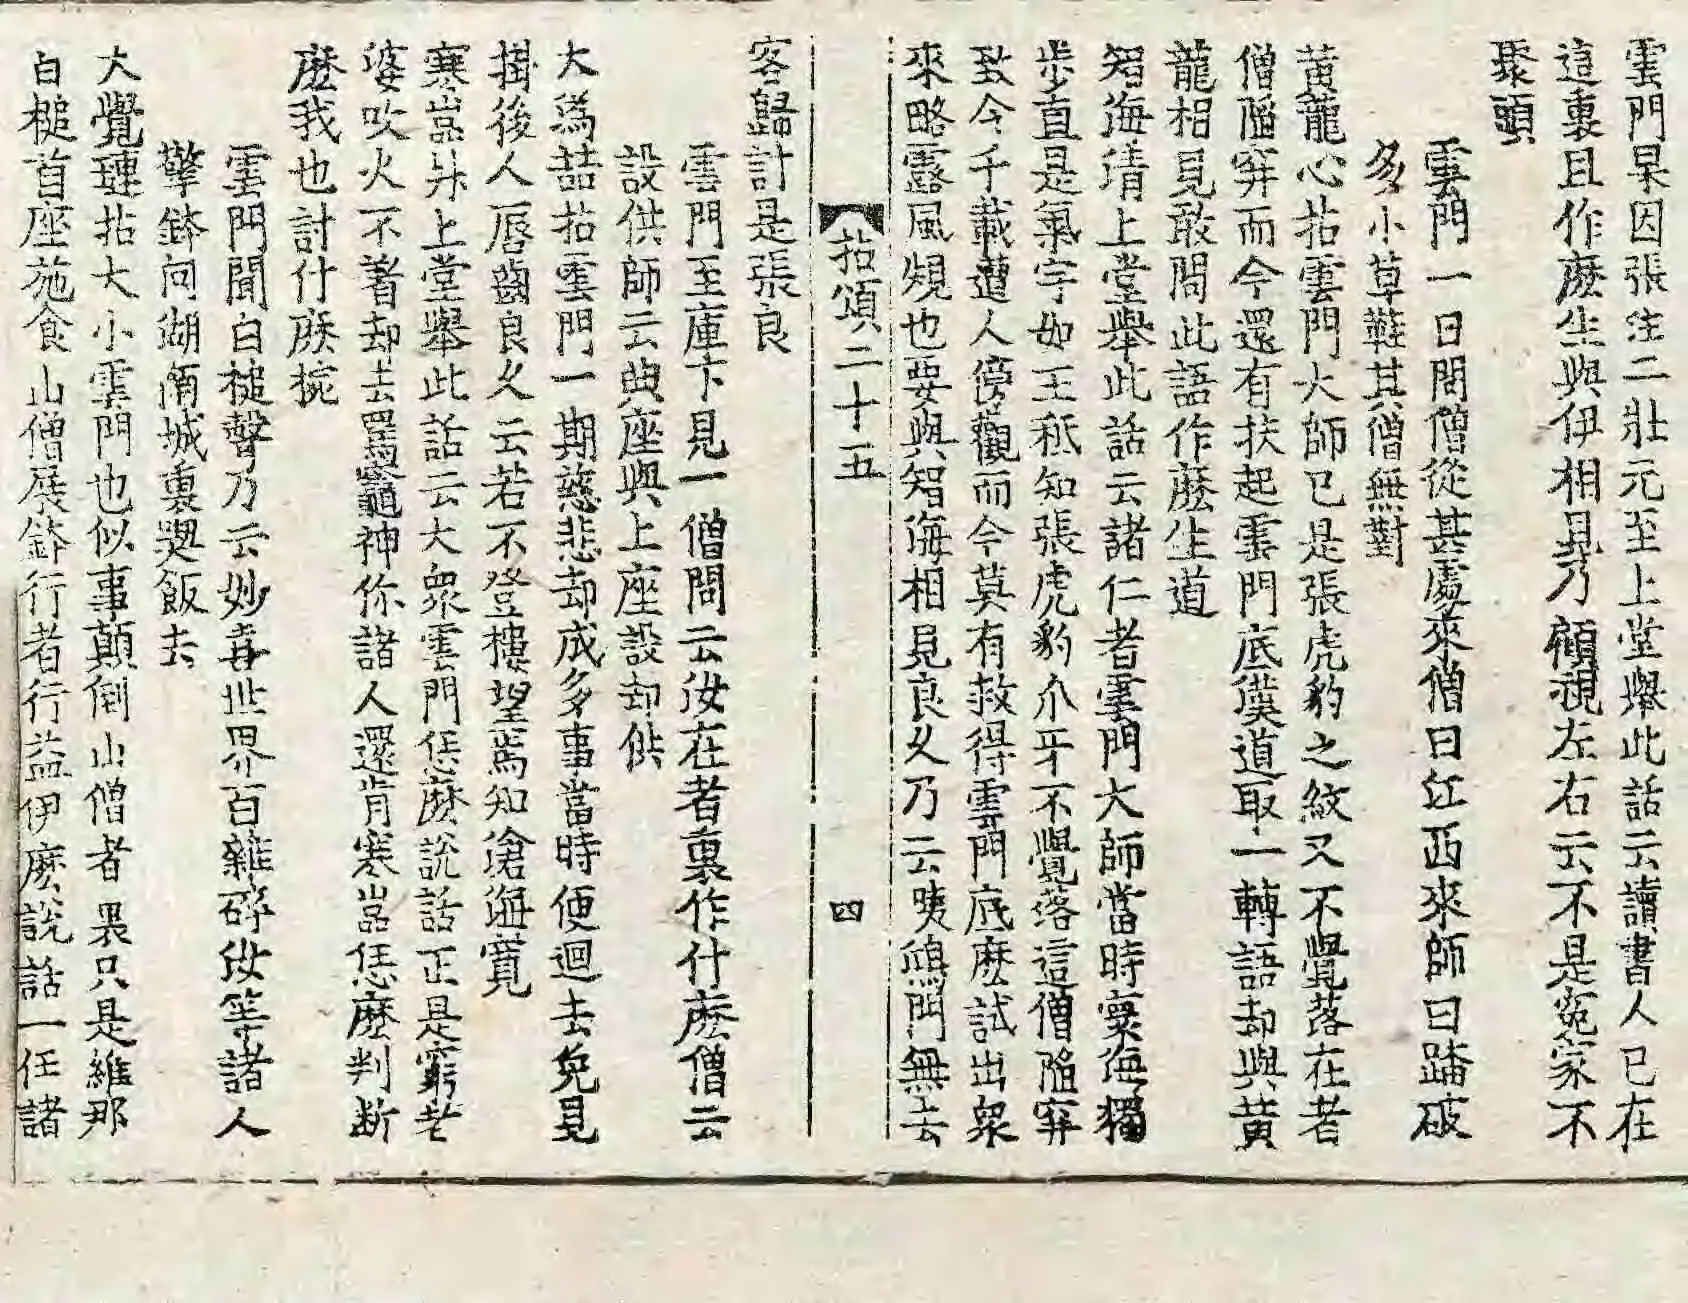 雲門杲因張注二壯元至上堂擧此話云讀書人已在
這裏且作麽生與伊相見乃顧視左右云不是寃家不
聚頭
雲門一日問僧從甚處來僧曰江西來師曰踏破
多小草鞋其僧無對
黃龍心拈雲門大師已是張虎豹之紋又不覺落在者
僧陷穽而今還有扶起雲門底漢道取一轉語却與黃
龍相見敢問此語作麽生道
智海淸上堂擧此話云諸仁者雲門大師當時寰海獨
步直是氣宇如王秖知張虎豹爪牙不覺落這僧陷穽
致今千載遭人傍觀而今莫有救得雲門底麽試出衆
來略露風䂓也要與智海相見良久乃云咦鴻門無去
拈頌二十五
四
客歸計是張良
雲門至庫下見一僧問云汝在者裏作什麽僧云
設供師云典座與上座設却供
大潙喆拈雲門一期慈悲却成多事當時便迴去免見
掛後人唇齒良久云若不登樓望焉知滄海寬
寒嵓升上堂擧此話云大衆雲門恁麽說話正是窮老
婆吹火不着却去罵竈神你諸人還肯寒嵓恁麽判斷
麽我也討什麽椀
雲門聞白槌聲乃云妙喜世界百雜碎汝等諸人
擎鉢向湖南城裏喫飯去
大覺璉拈大小雲門也似事顚倒山僧者裏只是維那
白槌首座施食山僧展鉢行者行益伊麽說話一任諸